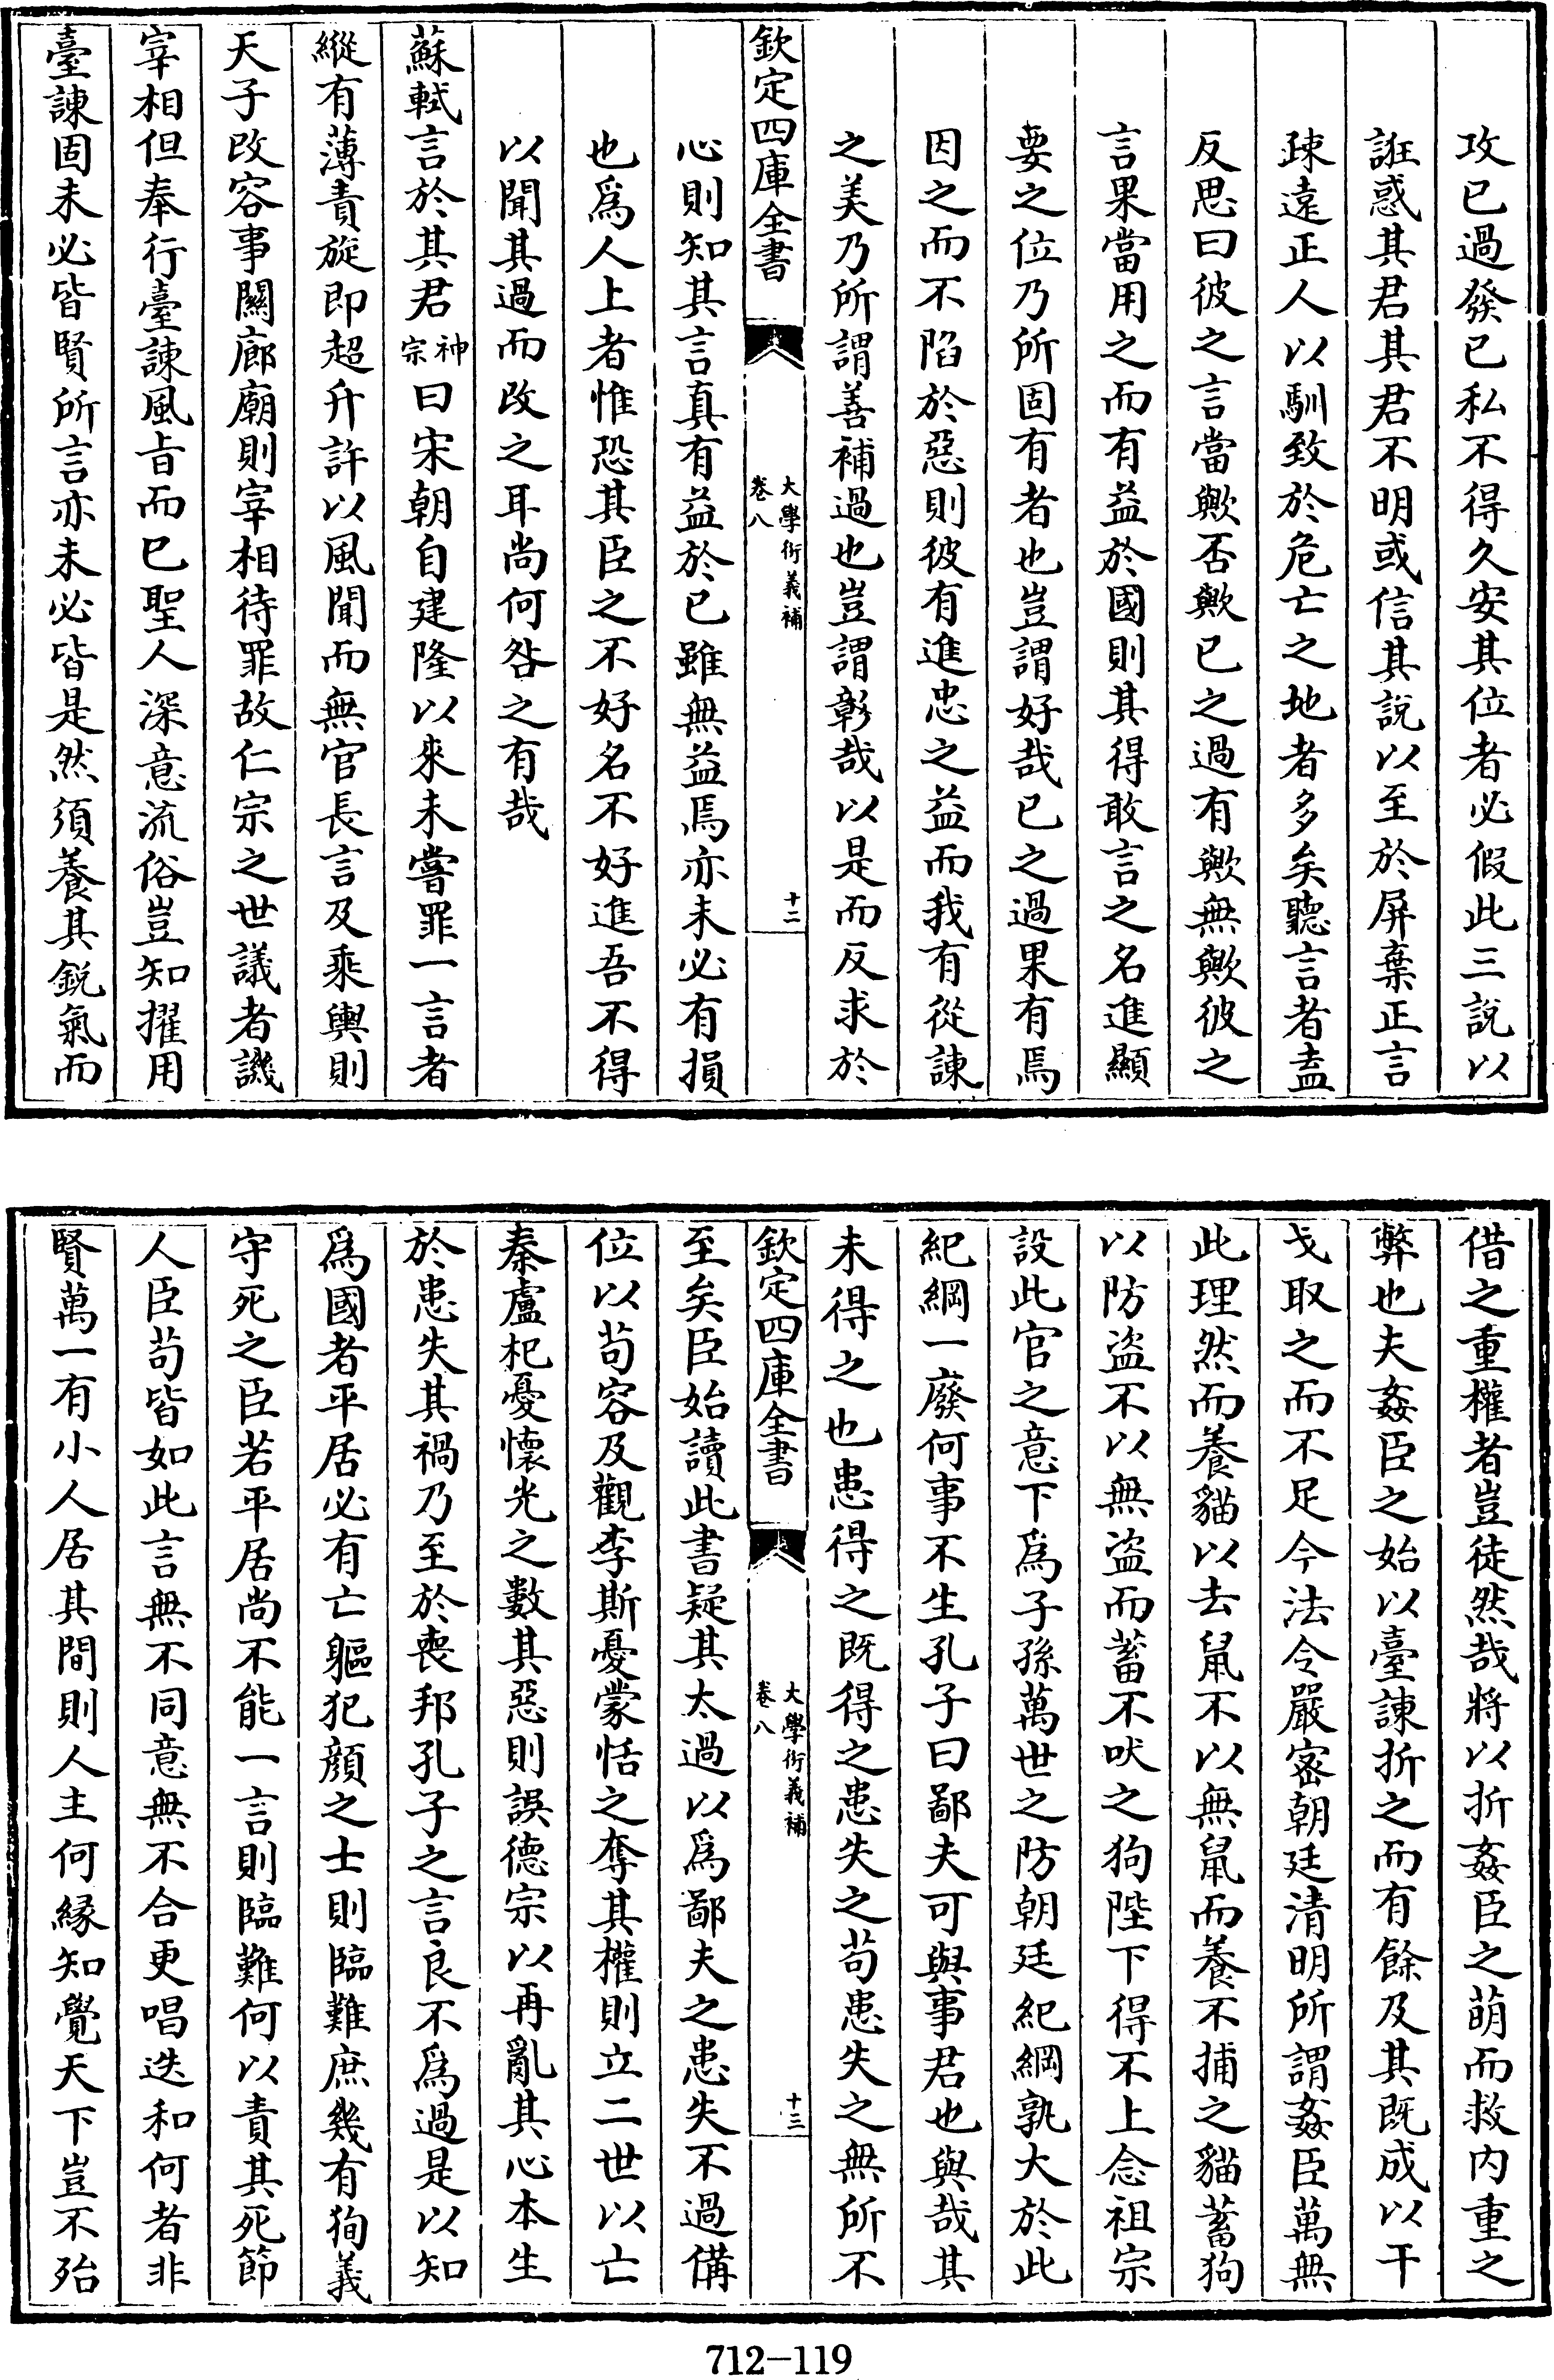 攻已過發已私不得久安其位者必假此三說以
誑惑其君其君不明或信其說以至於屏棄正言
疎遠正人以馴致於危亡之地者多矣聽言者盍
反思曰彼之言當歟否歟已之過有歟無歟彼之
言果當用之而有益於國則其得敢言之名進顯
要之位乃所固有者也豈謂好哉已之過果有焉
因之而不陷於惡則彼有進忠之益而我有從諫
之美乃所謂善補過也豈謂彰哉以是而反求於
欽定四庫全書
大學衍義補
卷八
十二
心則知其言真有益於已雖無益焉亦未必有損
也爲人上者惟恐其臣之不好名不好進吾不得
以聞其過而改之耳尚何咎之有哉
蘇軾言於其君神宗曰宋朝自建隆以來未嘗罪一言者
縱有薄責旋即超升許以風聞而無官長言及乘輿則
天子改容事關廊廟則宰相待罪故仁宗之世議者譏
宰相但奉行臺諫風旨而已聖人深意流俗豈知擢用
臺諫固未必皆賢所言亦未必皆是然須養其銳氣而
借之重權者豈徒然哉將以折姦臣之萌而救内重之
弊也夫姦臣之始以臺諫折之而有餘及其既成以干
戈取之而不足今法令嚴密朝廷清明所謂姦臣萬無
此理然而養貓以去鼠不以無鼠而養不捕之貓蓄狗
以防盜不以無盜而蓄不吠之狗陛下得不上念祖宗
設此官之意下爲子孫萬世之防朝廷紀綱孰大於此
紀綱一廢何事不生孔子曰鄙夫可與事君也與哉其
未得之也患得之既得之患失之苟患失之無所不
欽定四庫全書
大學衍義補
卷八
十三
至矣臣始讀此書疑其太過以爲鄙夫之患失不過備
位以苟容及觀李斯憂蒙恬之奪其權則立二世以亡
秦盧杞憂懷光之數其惡則誤德宗以再亂其心本生
於患失其禍乃至於喪邦孔子之言良不爲過是以知
爲國者平居必有亡軀犯顔之士則臨難庶幾有狥義
守死之臣若平居尚不能一言則臨難何以責其死節
人臣苟皆如此言無不同意無不合更唱迭和何者非
賢萬一有小人居其間則人主何緣知覺天下豈不殆
712-119